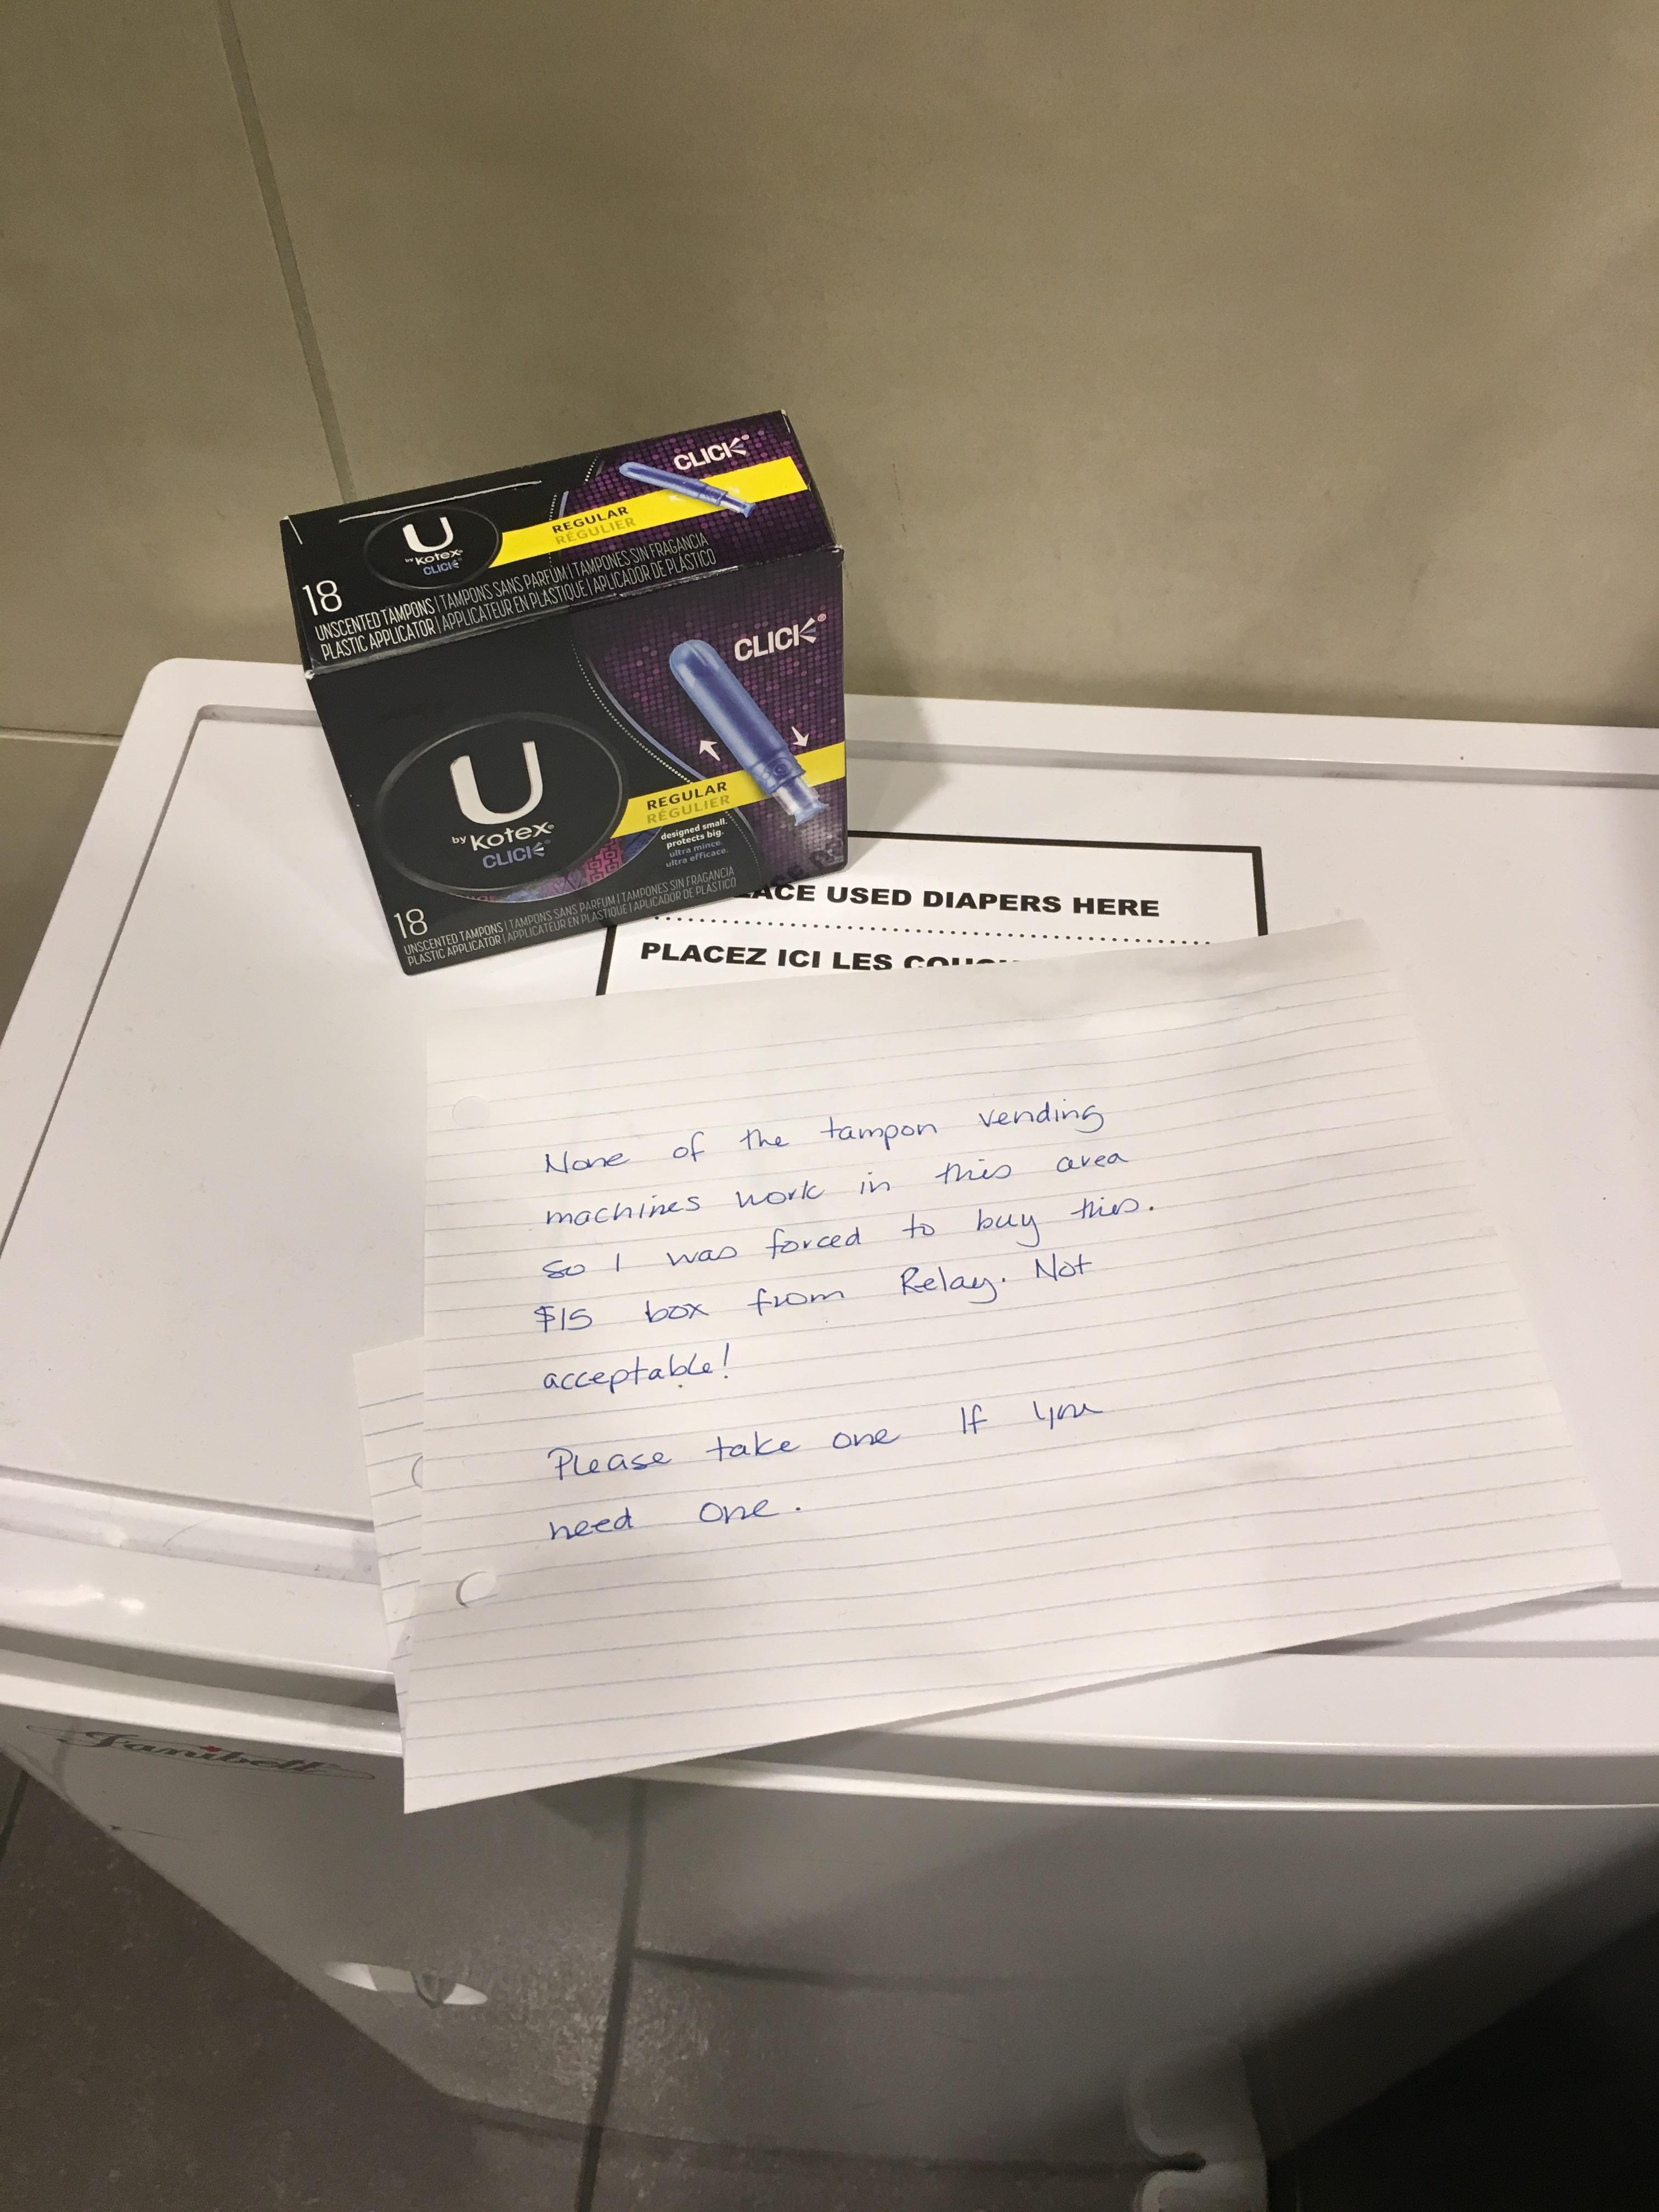 CLICK®
U
by Kotex®
CLICK
REGULAR
RÉGULIER
18
UNSCENTED TAMPONS | TAMPONS SANS PARFUM | TAMPONES SIN FRAGANCIA
PLASTIC APPLICATOR | APPLICATEUR EN PLASTIQUE | APLICADOR DE PLÁSTICO
CLICK®
U
by Kotex®
CLICK
REGULAR
RÉGULIER
designed small.
protects big.
ultra mince.
ultra efficace.
18
UNSCENTED TAMPONS | TAMPONS SANS PARFUM | TAMPONES SIN FRAGANCIA
PLASTIC APPLICATOR | APPLICATEUR EN PLASTIQUE | APLICADOR DE PLÁSTICO
USED DIAPERS HERE
PLACEZ ICI LES
None of the tampon vending
machines work in this area
so I was forced to buy this.
$15 box from Relay. Not
acceptable!
Please take one If you
need one.
Sanibell